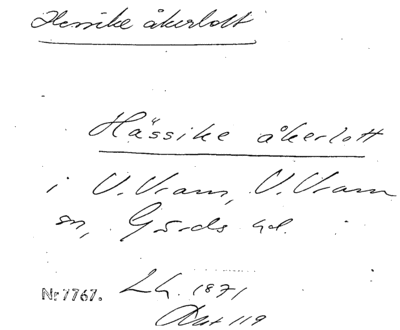 Hessike åkerlott
Hässike åkerlott
i V. Vram, V. Vram
sn, Gärds hd.
Nr 7767. LG. 1871
Akt 119